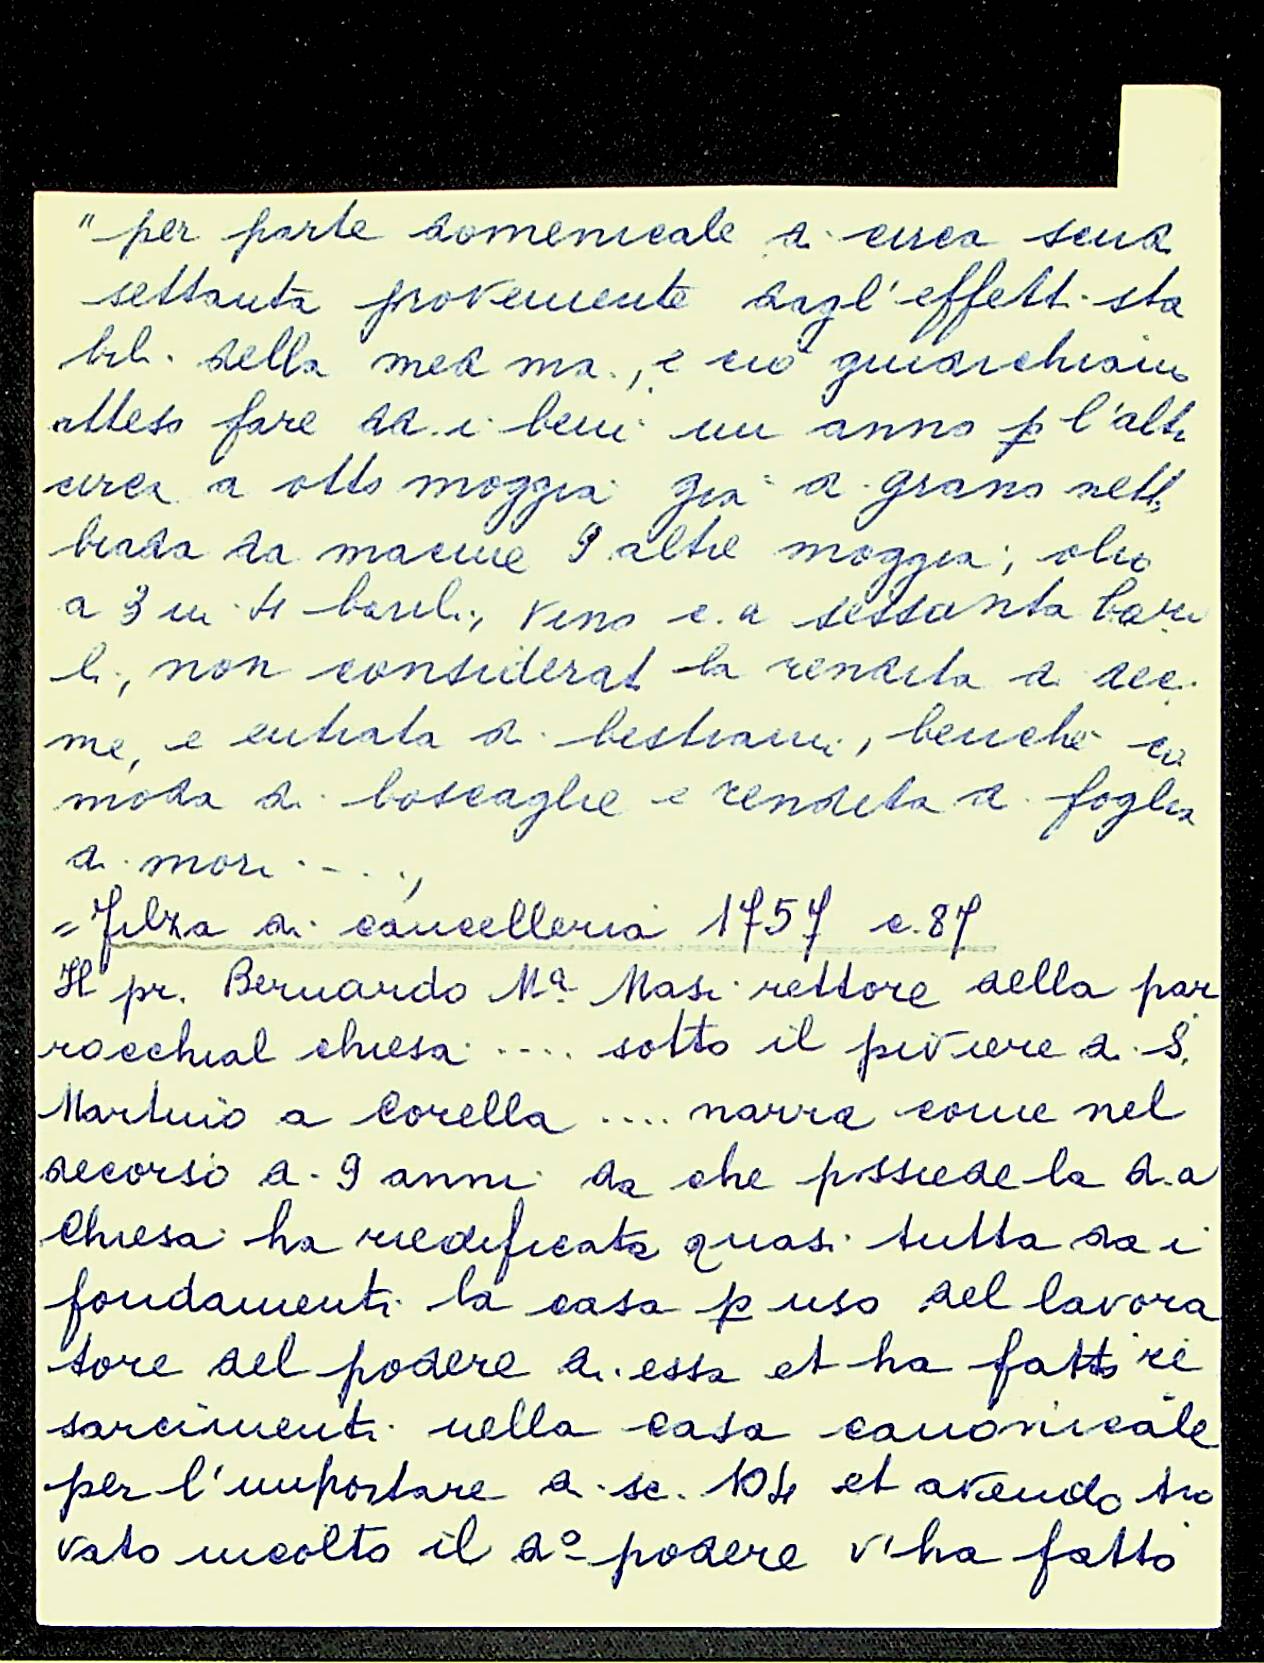 "per parte domenicale di circa scudi
settanta proveniente dagl'effetti sta
bili della med ma., e ciò
atteso fare dd. i beni un anno p l'altro
circa a otto moggia già di grano netto
biada da macine 9 altre moggia; olio
a 3 in 4 barili; vino c.a sessanta bari
li, non considerat la rendita di deci
me, e entrata di bestiami, benchè co
moda di boscaglie e rendita di foglia
di mori - . . . ,
= Filza di cancelleria 1757 c. 87
Il pr. Bernardo Mª Masi rettore della par
rocchial chiesa .... sotto il piviere di S.
Martino a Corella .... narra come nel
decorso di 9 anni da che possiede la d.a
Chiesa ha riedificata quasi tutta da i
fondamenti la casa p uso del lavora
tore del podere di essa et ha fatto ri
sarcimenti nella casa canonicale
per l'importare di sc. 104 et avendo tro
vato incolto il dº podere v'ha fatto